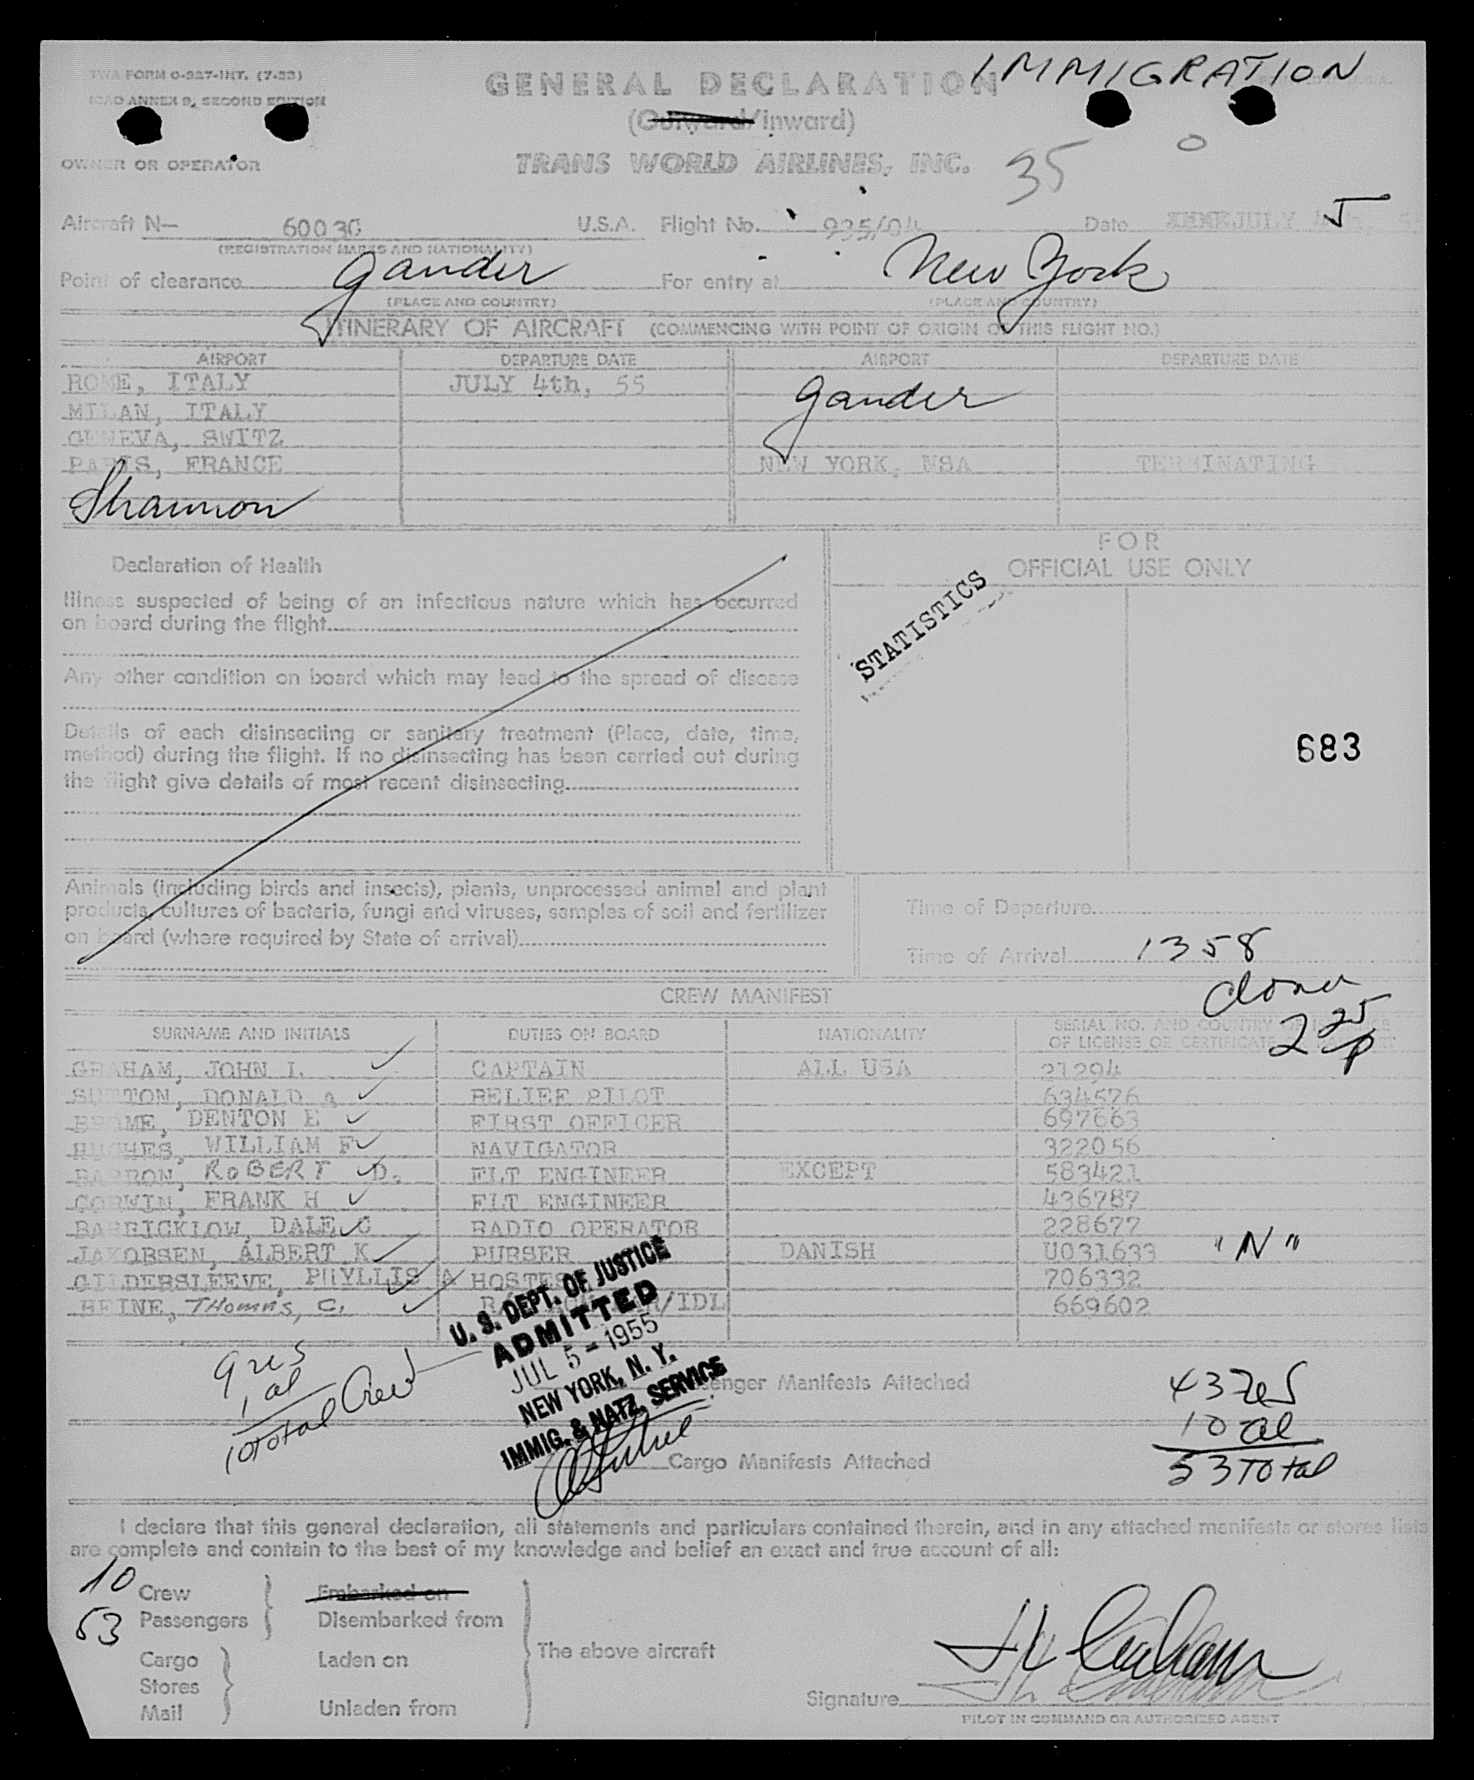 IMMIGRATION
TWA FORM O-927-INT. (7-53)
ICAO ANNEX 9, SECOND EDITION
GENERAL DECLARATION
(Outward/Inward)
OWNER OR OPERATOR
TRANS WORLD AIRLINES, INC.
35
Aircraft N— 6003G U.S.A. Flight No. 935/04 Date JULY 5
(REGISTRATION MARKS AND NATIONALITY)
Point of clearance Gander For entry at New York
(PLACE AND COUNTRY) (PLACE AND COUNTRY)
ITINERARY OF AIRCRAFT (COMMENCING WITH POINT OF ORIGIN OF THIS FLIGHT NO.)
AIRPORT DEPARTURE DATE AIRPORT DEPARTURE DATE
ROME, ITALY JULY 4th, 55 Gander
MILAN, ITALY
GENEVA, SWITZ
PARIS, FRANCE NEW YORK, NSA TERMINATING
Shannon
FOR
OFFICIAL USE ONLY
Declaration of Health
STATISTICS
Illness suspected of being of an infectious nature which has occurred
on board during the flight
Any other condition on board which may lead to the spread of disease
Details of each disinsecting or sanitary treatment (Place, date, time,
method) during the flight. If no disinsecting has been carried out during
the flight give details of most recent disinsecting
683
Animals (including birds and insects), plants, unprocessed animal and plant
products, cultures of bacteria, fungi and viruses, samples of soil and fertilizer
on board (where required by State of arrival)
Time of Departure
Time of Arrival 1358
CREW MANIFEST
2 25 P
SURNAME AND INITIALS DUTIES ON BOARD NATIONALITY SERIAL NO. AND COUNTRY OF
OF LICENSE OR CERTIFICATE
GRAHAM, JOHN I. CAPTAIN ALL USA 21294
SUTTON, DONALD A RELIEF PILOT 634576
BROME, DENTON E FIRST OFFICER 697663
HUGHES, WILLIAM F NAVIGATOR 322056
BARRON, ROBERT D. FLT ENGINEER EXCEPT 583421
CORWIN, FRANK H FLT ENGINEER 436787
BARRICKLOW, DALE C RADIO OPERATOR 228677
JAKOBSEN, ALBERT K PURSER DANISH U031633 "N"
GILDERSLEEVE, PHYLLIS A HOSTESS 706332
HEINE, THOMAS, C. /IDL 669602
U. S. DEPT. OF JUSTICE
ADMITTED
JUL 5 - 1955
NEW YORK, N. Y.
IMMIG. & NATZ. SERVICE
9 us
1 al
10 total Crew
Passenger Manifests Attached
43 zes
10 al
53 Total
Cargo Manifests Attached
I declare that this general declaration, all statements and particulars contained therein, and in any attached manifests or stores lists
are complete and contain to the best of my knowledge and belief an exact and true account of all:
10 Crew Embarked on
53 Passengers Disembarked from
The above aircraft
Cargo Laden on
Stores
Mail Unladen from
Signature J I Graham
PILOT IN COMMAND OR AUTHORIZED AGENT